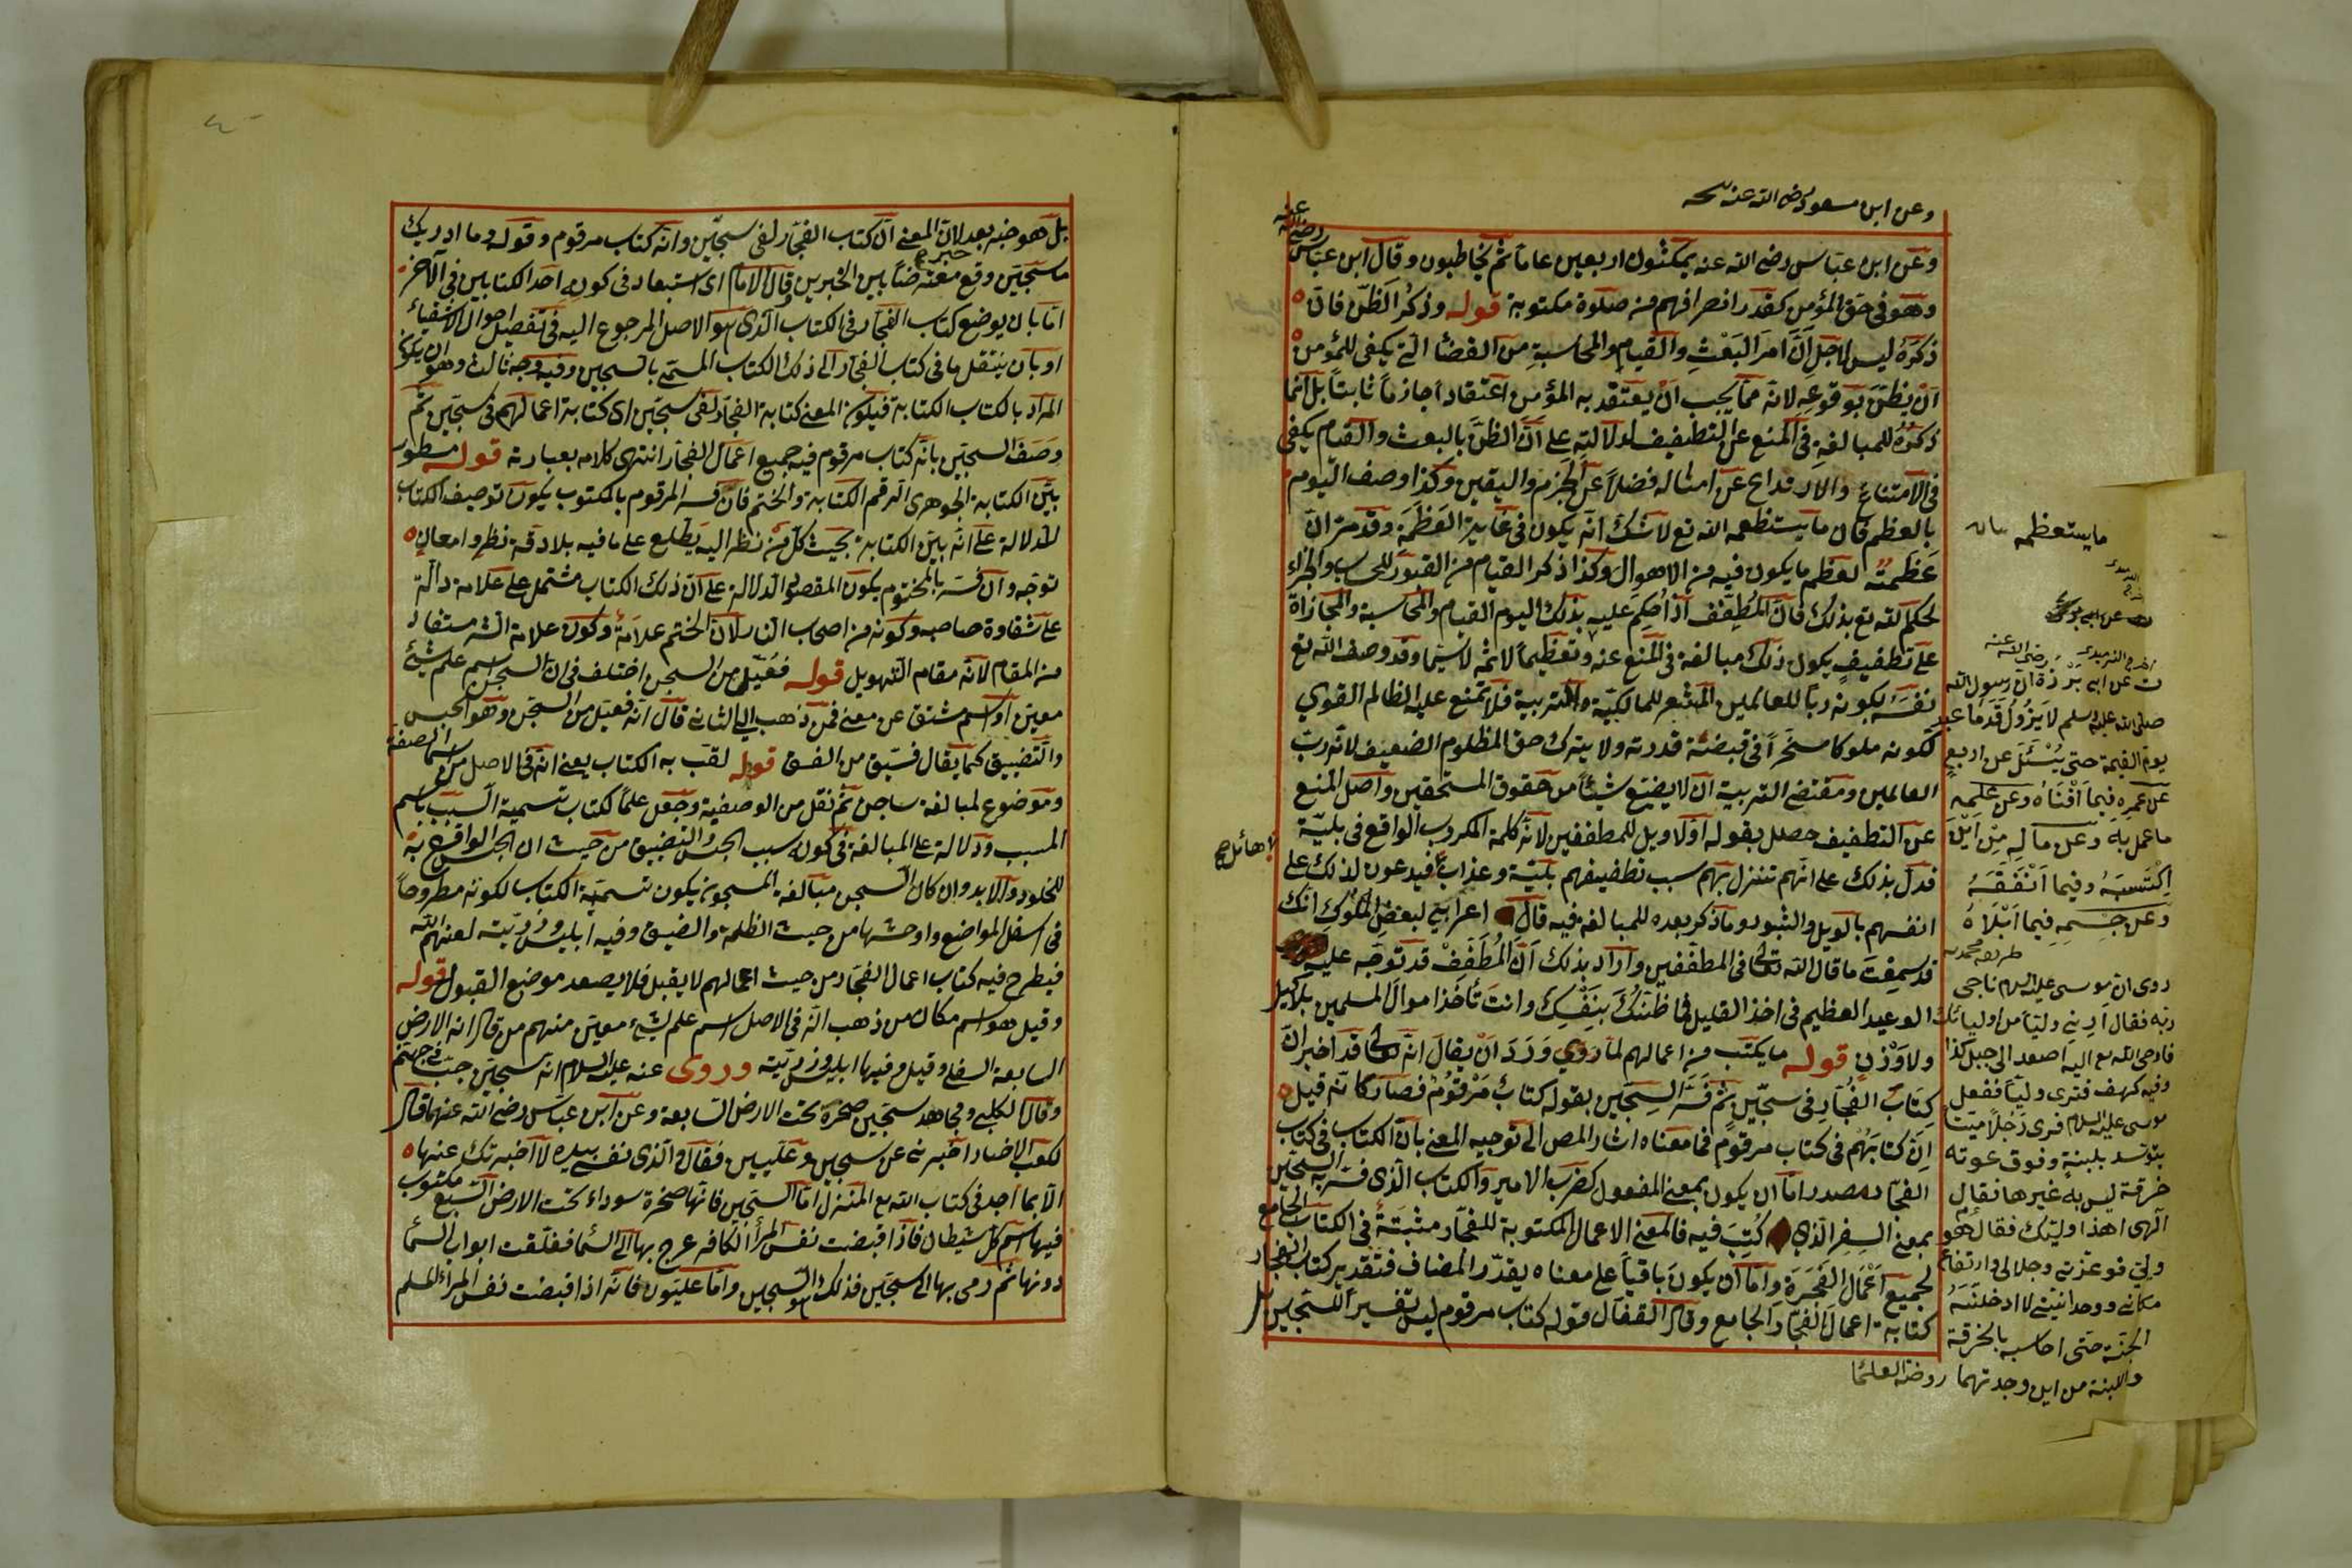 وعن ابن مسعود رضى الله عنه
وعن ابن عباس رضى الله عنه يمكثون اربعين عاما ثم يخاطبون وقال ابن عباس رضى الله عنه
وهو فى حق المؤمن كقدر انصرافهم من صلوة مكتوبة قوله وذكر الظن فان
ذكره ليس لاجل ان امر البعث والقيام والمحاسبة من القضايا التى يكفى للمؤمن
ان يظن بوقوعه لانه مما يجب ان يعتقد به المؤمن اعتقادا جازما ثابتا بل انما
ذكره للمبالغة فى المنع عن التطفيف لدلالته على ان الظن بالبعث والقيام يكفى
فى الامتناع والارتداع عن امثاله فضلا عن الجزم واليقين وكذا وصف اليوم
بالعظم فان ما يستظمه الله تع لا شك انه يكون فى غاية العظمة وقد مر ان
عظمته لعظم ما يكون فيه من الاهوال وكذا ذكر القيام من القبور للحساب والجزاء
لحكم الله تع بذلك فان المطفف اذا حكم عليه بذلك اليوم القيام والمحاسبة والمجازاة
على تطفيف يكون ذلك مبالغة فى المنع عنه وتعظيما لاثمه لا سيما وقد وصف الله تع
نفسه بكونه ربا للعالمين المشعر للمالكية والتربية فلا تمنع عليه الظالم القوى
لكونه ملوكا مسخرا فى قبضة قدرته ولا يترك حق المظلوم الضعيف لانه رب
العالمين ومقتضى التربية ان لا يضيع شيئا من حقوق المستحقين واصل المنع
عن التطفيف حصل بقوله اولا ويل للمطففين لانه كلمة المكروب الواقع فى بلية
فدل بذلك على انهم تنزل بهم سبب تطفيفهم بلية وعذاب فيدعون لذلك على
انفسهم بالويل والثبور وما ذكر بعده للمبالغة فيه قال اعرابى لبعض الملوك انك
قد سمعت ما قال الله تعالى فى المطففين واراد بذلك ان المطفف قد توجه عليه
الوعيد العظيم فى اخذ القليل فما ظنك بنفسك وانت تأخذ اموال المسلمين بلا كيل
ولا وزن قوله ما يكتب من اعمالهم لما روى ورد ان يقال انه تعالى قد اخبر ان
كتاب الفجار فى سجين ثم فسر السجين بقوله كتاب مرقوم فصار كانه قيل
ان كتابهم فى كتاب مرقوم فما معناه اشار المص الى توجيه المعنى بان الكتاب فى كتاب
الفجار مصدر اما ان يكون بمعنى المفعول كضرب الامير والكتاب الذى فسر به السجين
بمعنى السفر الذى كتب فيه فالمعنى الاعمال المكتوبة للفجار مثبتة فى الكتاب الجامع
لجميع اعمال الفجرة واما ان يكون باقيا على معناه يقدر المضاف فتقدير كتاب الفجار
كتابة اعمال الفجار الجامع وقال القفال قوله كتاب مرقوم ليس تفسير السجين بل
ما يستعظمه
عن ابى برزة رضى الله عنه ان رسول الله
صلى الله عليه وسلم لا يزول قدما عبد
يوم القيمة حتى يسئل عن اربع
عن عمره فيما افناه وعن علمه
ما عمل به وعن ماله من اين
اكتسبه وفيما انفقه
وعن جسمه فيما ابلاه
روى ان موسى عليه السلام ناجى
ربه فقال ارنى وليا من اوليائك
فاوحى الله تع اليه اصعد الى جبل كذا
وفيه كهف فترى وليا ففعل
موسى عليه السلام فرى رجلا ميتا
يتوسد بلبنة وفوق عوته
خرقة ليس به غيرها فقال
الهى اهذا وليك فقال هو
ولى فوعزتى وجلالى وارتفاع
مكانى ووحدانيتى لا ادخلنه
الجنة حتى احاسبه بالخرقة
واللبنة من اين وجدتهما روضة العلما
بل هو خبر بعد لان المعنى ان كتاب الفجار لفى سجين وانه كتاب مرقوم وقوله وما ادريك
ما سجين وقع معترضا بين الخبرين وقال الامام اى استبعاد فى كون احد الكتابين فى الآخر
اما بان يوضع كتاب الفجار فى الكتاب الذى هو الاصل المرجوع اليه فى تفصيل احوال الاشقياء
او بان ينتقل ما فى كتاب الفجار الى ذلك الكتاب المسمى بالسجين وفيه وجه ثالث وهو ان يكون
المراد بالكتاب الكتابة فيكون المعنى كتابة الفجار لفى سجين اى كتابة اعمالهم فى سجين ثم
وصف السجين بانه كتاب مرقوم فيه جميع اعمال الفجار انتهى كلامه بعبارته قوله مسطور
بين الكتابة الجوهرى الرقم الكتابة والختم فان فسر المرقوم بالمكتوب يكون توصيف الكتاب
للدلالة على انه بين الكتابة بحيث كل من نظر اليه يطلع على ما فيه بلا دقة نظر وامعان
توجه وان فسر بالمختوم يكون المقصود الدلالة على ان ذلك الكتاب مشتمل على علامة دالة
على شقاوة صاحبه وكونه من اصحاب النار لان الختم علامة وكون علامة الشر مستفاد
من المقام لانه مقام التهويل قوله فعيل من السجن اختلف فى ان السجين اسم علم شئ
معين او اسم مشتق عن معنى فمن ذهب الى الثانى قال انه فعيل من السجن وهو الحبس
والتضييق كما يقال فسيق من الفسق قوله لقب به الكتاب يعنى انه فى الاصل من اسما الصفة
وموضوع لمبالغة ساجن ثم نقل من الوصفية وجعل علما لكتاب تسمية السبب باسم
المسبب ودلالة على المبالغة فى كونه سبب الحبس والتضييق من حيث ان الحبس الواقع به
للخلود والابد وان كان السجن مبالغة المسجون يكون تسمية الكتاب لكونه مطروحا
فى اسفل المواضع واوحشها من حيث الظلمة والضيق وفيه ابليس وذريته لعنهم الله
فيطرح فيه كتاب اعمال الفجار من حيث اعمالهم لا يقبل فلا يصعد موضع القبول قوله
وقيل هو اسم مكان من ذهب انه فى الاصل اسم علم لشئ معين منهم من قال انه الارض
السابعة السفلى وقيل وفيها ابليس وذريته وروى عنه عليه السلام انه سجين جب فى جهنم
وقال الكلبى ومجاهد سجين صخرة تحت الارض السابعة وعن ابن عباس رضى الله عنهما قال
لكعب الاخبار اخبرنى عن سجين وعليين فقال والذى نفسى بيده لا اخبرتك عنها
الا بما اجد فى كتاب الله تع المنزل اما السجين فانها صخرة سوداء تحت الارض السبع مكتوب
فيها اسم كل شيطان فاذا قبضت نفس المرأ الكافر عرج بها الى السما فغلقت ابواب السما
دونها ثم رمى بها الى سجين فذلك هو السجين واما عليون فانه اذا قبضت نفس المراء المسلم